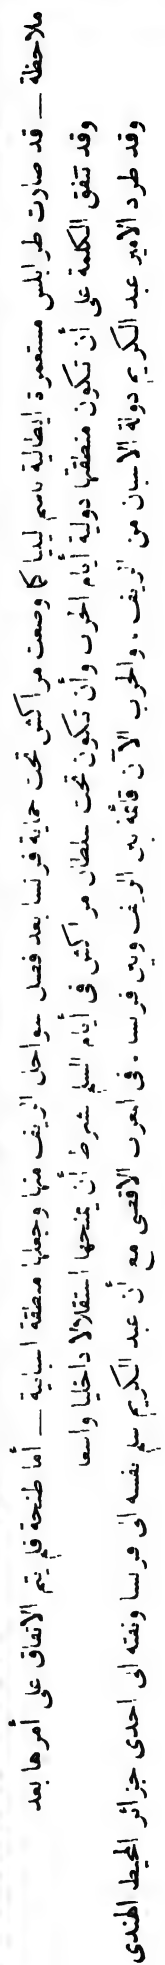 ملاحظة — قد صارت طرابلس مستعمرة ايطالية باسم ليبيا كما وضعت مراكش تحت حماية فرنسا بعد فصل سواحل الريف منها وجعلها منطقة اسبانية — أما طنجة فلم يتم الاتفاق على أمرها بعد
وقد تتفق الكلمة على أن تكون منطقتها دولية أيام الحرب وأن تكون تحت سلطان مراكش فى أيام السلم بشرط أن يمنحها استقلالا داخليا واسعا
وقد طرد الامير عبد الكريم دولة الاسبان من الريف، والحرب الآن قائمة بين الريف وبين فرنسا. فى المغرب الاقصى مع أن عبد الكريم سلم نفسه الى فرنسا ونفته الى احدى جزائر المحيط الهندى